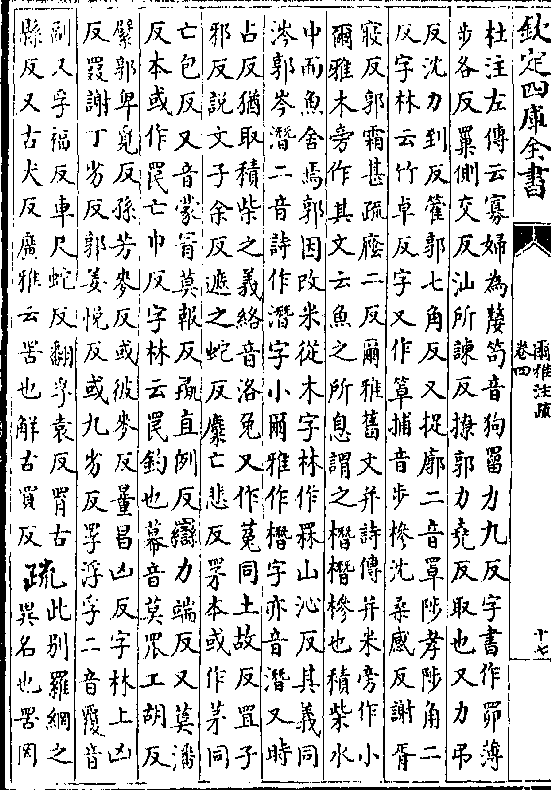 欽定四庫全書
爾雅注疏
卷四
十七
杜注左傳云寡婦為嫠笱音狗罶力九反字書作䍘薄
步各反罺側交反汕所諫反撩郭力堯反取也又力弔
反沈力到反籗郭七角反又捉廓二音罩陟孝陟角二
反字林云竹卓反字又作箄捕音步椮沈桑感反謝胥
寢反郭霜甚疏廕二反爾雅舊文并詩傳并米旁作小
爾雅木旁作其文云魚之所息謂之橬橬椮也積柴水
中而魚舍焉郭因改米從木字林作罧山沁反其義同
涔郭岑潛二音詩作潛字小爾雅作橬字亦音潛又時
占反猶取積柴之義絡音洛兔又作菟同土故反罝子
邪反說文子余反遮之蛇反麋亡悲反罞本或作茅同
亡包反又音蒙罥莫報反彘直例反䜌力端反又莫潘
反本或作罠亡巾反字林云罠釣也幕音莫罛工胡反
繴郭卑覓反孫芳麥反或彼麥反罿昌凶反字林上凶
反罬謝丁劣反郭姜悦反或九劣反罦浮孚二音覆音
副又孚福反車尺蛇反翻孚袁反罥古
縣反又古犬反廣雅云罟也解古買反
疏
此别羅網之
異名也罟罔